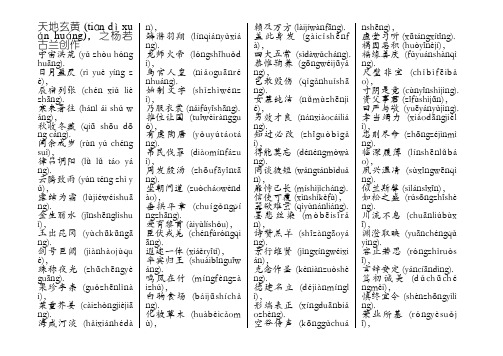 天地玄黄 (tiān dì xuán huáng)，之杨若古兰创作
宇宙洪荒 (yǔ zhòu hóng huāng).
日月盈昃 (rì yuè yíng zè)，
辰宿列张 (chén xiù liè zhāng).
寒来暑往 (hánl ái shǔ wǎng)，
秋收冬藏 (qiū shōu dōng cáng).
闰余成岁 (rùn yú chéng suì)，
律吕调阳 (lǜ lǚ táo yáng).
云腾致雨 (yún téng zhì yǔ)，
露结为霜 (lùjiéwéishuāng).
金生丽水 (jīnshēnglìshuǐ)，
玉出昆冈 (yùchūkūngāng).
剑号巨阙 (jiànhàojùquè)，
珠称夜光 (zhūchēngyèguāng).
果珍李柰 (guǒzhēnlǐnài)，
菜重芥姜 (càizhòngjièjiāng).
海咸河淡 (hǎixiánhédàn)，
鳞潜羽翔 (línqiányǔxiáng).
龙师火帝 (lóngshīhuǒdì)，
鸟官人皇 (niǎoguānrénhuáng).
始制文字 (shǐzhìwénzì)，
乃服衣裳 (nǎifúyīshāng).
推位让国 (tuīwèiràngguó)，
有虞陶唐 (yǒuyútáotáng).
吊民伐罪 (diàomínfázuì)，
周发殷汤 (zhōufāyīntāng).
坐朝问道 (zuòcháowèndào)，
垂拱平章 (chuígǒngpíngzhāng).
爱育黎首 (àiyùlíshǒu)，
臣伏戎羌 (chénfúróngqiāng).
遐迩一体 (xiáěryītǐ)，
率宾归王 (shuàibīnguīwáng).
鸣凤在竹 (míngfèngzàizhú)，
白驹食场 (báijūshíchǎng).
化被草木 (huàbèicǎomù)，
赖及万方 (làijíwànfāng).
盖此身发 (gàicǐshēnfà)，
四大五常 (sìdàwǔcháng).
恭惟鞠养 (gōngwéijūyǎng)，
岂敢毁伤 (qǐgǎnhuǐshāng).
女慕贞洁 (nǚmùzhēnjié)，
男效才良 (nánxiàocáiliáng).
知过必改 (zhīguòbìgǎi)，
得能莫忘 (dénéngmòwàng).
罔谈彼短 (wǎngtánbǐduǎn)，
靡恃己长 (míshìjǐcháng).
信使可覆 (xìnshǐkěfù)，
器欲难量 (qìyùnánliáng).
墨悲丝染 (mòbēisīrǎn)，
诗赞羔羊 (shīzàngāoyáng).
景行维贤 (jǐngxíngwéixián)，
克念作圣 (kèniànzuòshèng).
德建名立 (déjiànmínglì)，
形端表正 (xíngduānbiǎozhèng).
空谷传声 (kōnggǔchuánshēng)，
虚堂习听 (xūtángxítīng).
祸因恶积 (huòyīnèjī)，
福缘善庆 (fúyuánshànqìng).
尺璧非宝 (chǐbìfēibǎo)，
寸阴是竞 (cùnyīnshìjìng).
资父事君 (zīfùshìjūn)，
曰严与敬 (yuēyányǔjìng).
孝当竭力 (xiàodāngjiélì)，
忠则尽命 (zhōngzéjìnmìng).
临深履薄 (línshēnlǚbáo)，
夙兴温凊 (sùxīngwēnqìng).
似兰斯馨 (sìlánsīxīn)，
如松之盛 (rúsōngzhīshèng).
川流不息 (chuānliúbùxī)，
渊澄取映 (yuānchéngqǔyìng).
容止若思 (róngzhǐruòsī)，
言辞安定 (yáncíāndìng).
笃初诚美 (dǔchūchéngměi)，
慎终宜令 (shènzhōngyílìng).
荣业所基 (róngyèsuǒjī)，